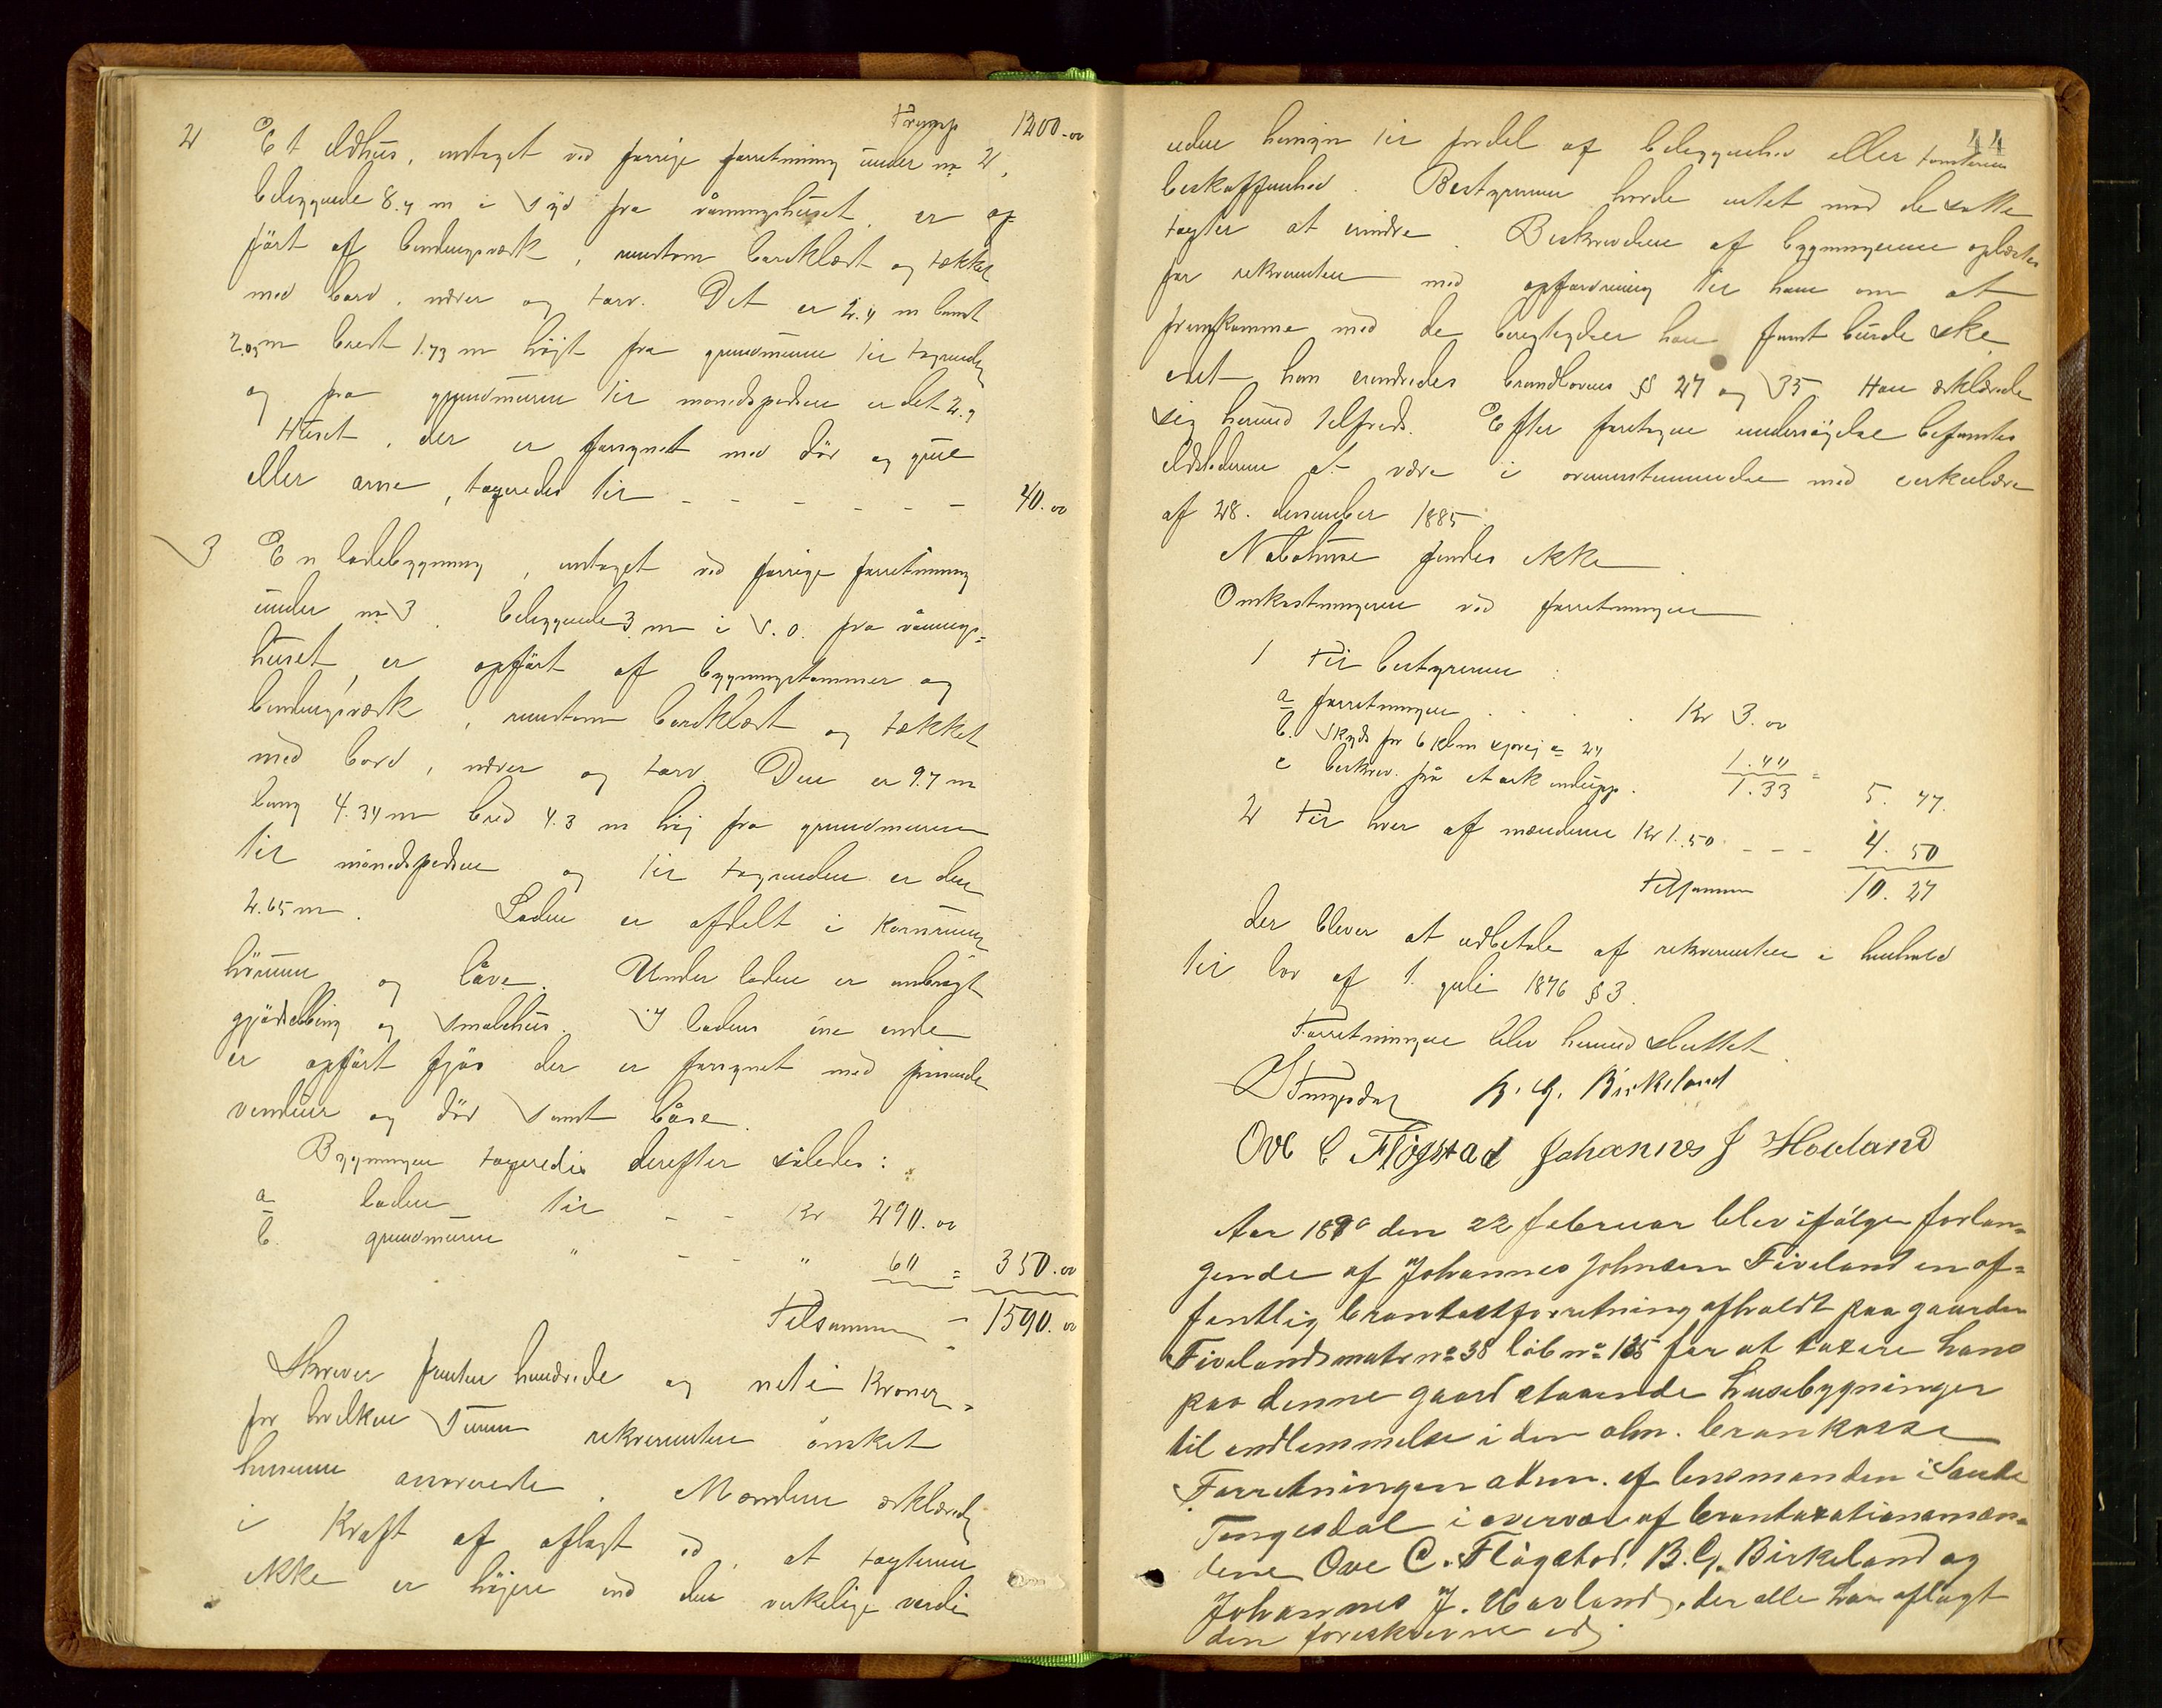 Transp 1200.00
2 Et ildhus, antaget ved forrige forretning under no 2,
beliggende 8.4 m i syd fra våningshuset, er op=
fört af bindingsværk, rundtom bordklædt og tækket
med bord, næver og torv. Det er 2.4 m langt
2.03 m bredt 1.73 m höit fra grundmuren til tagrenden
og fra grundmuren til mønedspidsen er det 2.9
Huset, der er forsynet med dör og grue
eller arne, taxeredes til - - - - - 40.00
3 En ladebygning, antaget ved forrige forretning
under no 3. beliggende 3 m i S.O. fra vånings=
huset, er opfört af bygningstømmer og
bindingsværk, rundtom bordklædt og tækket
med bord, næver og torv. Den er 9.7 m
lang 4.34 m bred 4.3 m höj fra grundmuren
til mönedspidsen og til tagrenden er den
2.65 m. Laden er afdelt i kornrum,
hörum og låve. Under laden er anbragt
gjödselbing og smalehus. I ladens ene ende
er opfört fjös der er forsynet med fornödne
vinduer og dör samt båse.
Bygningen taxeredes derefter således:
a laden til - - Kr 290.00
b. grundmuren " - - " 60 = 350.00
Tilsammen - 1590.00
Skriver femten hundrede og nitti Kroner,
for hvilken sum rekvirenten önsket
husene assurerede. Mændene erklærede
i Kraft af aflagt ed, at taxterne
ikke er höjere end den virkelige værdi
44
uden hensyn til fordel af beliggenhed eller tomternes
beskaffenhed. Bestyreren havde intet mod de satte
taxter at erindre. Beskrivelsen af bygningerne oplæstes
for rekvirenten med opfordring til ham om at
fremkomme med de berigtigelser han fandt burde ske
idet han erindredes brandlovens §§ 27 og 35. Han erklærede
sig hermed tilfreds. Efter foretagen undersögelse befandtes
ildstederne at være i overensstemmelse med cirkulære
af 28. desember 1885
Nabohuse findes ikke.
Omkostningerne ved forretningen
1 Til bestyreren:
a forretningen . . . . Kr 3.00
b. Skyds for 6 klm sjövej a 24 1.44
c beskriv. på et ark indtegp. 1.33 = 5.77
2 Til hver af mændene Kr 1.50 - - - 4.50
Tilsammen 10.27
der blever at udbetale af rekvirenten i henhold
til lov af 1. juli 1876 § 3.
Forretningen blev hermed sluttet.
Tungesdal B. G. Birkeland
Ove C Flögstad Johannes J Hovland
Aar 1890 den 22 februar blev ifölge forlan=
gende af Johannes Johnsen Fiveland en of=
fentlig brantaxtforretning afholdt paa gaarden
Fivelands matr no 38 löb no 125 for at taxere hans
paa denne gaard staaende husebygninger
til indlemmelse i den alm. brankasse
Forretningen adm. af lensmanden i Saude
Tengesdal i overvær af brantaxationsmæn=
dene Ove C. Flögstad, B. G. Birkeland og
Johannes J. Havland, der alle har aflagt
den foreskrevne ed.